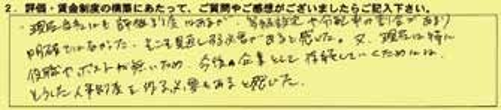 2. 評価・賃金制度の構築にあたって、ご質問やご感想がございましたらご記入下さい。
・現在当社にも評価制度はあるが、等級設定や分配率の割合があまり
明確ではなかった。そこも見直しする必要があると感じた。又、現在は特に
役職やポストが無いため、今後の企業として存続していくためには、
そうした人事制度を作る必要もあると感じた。